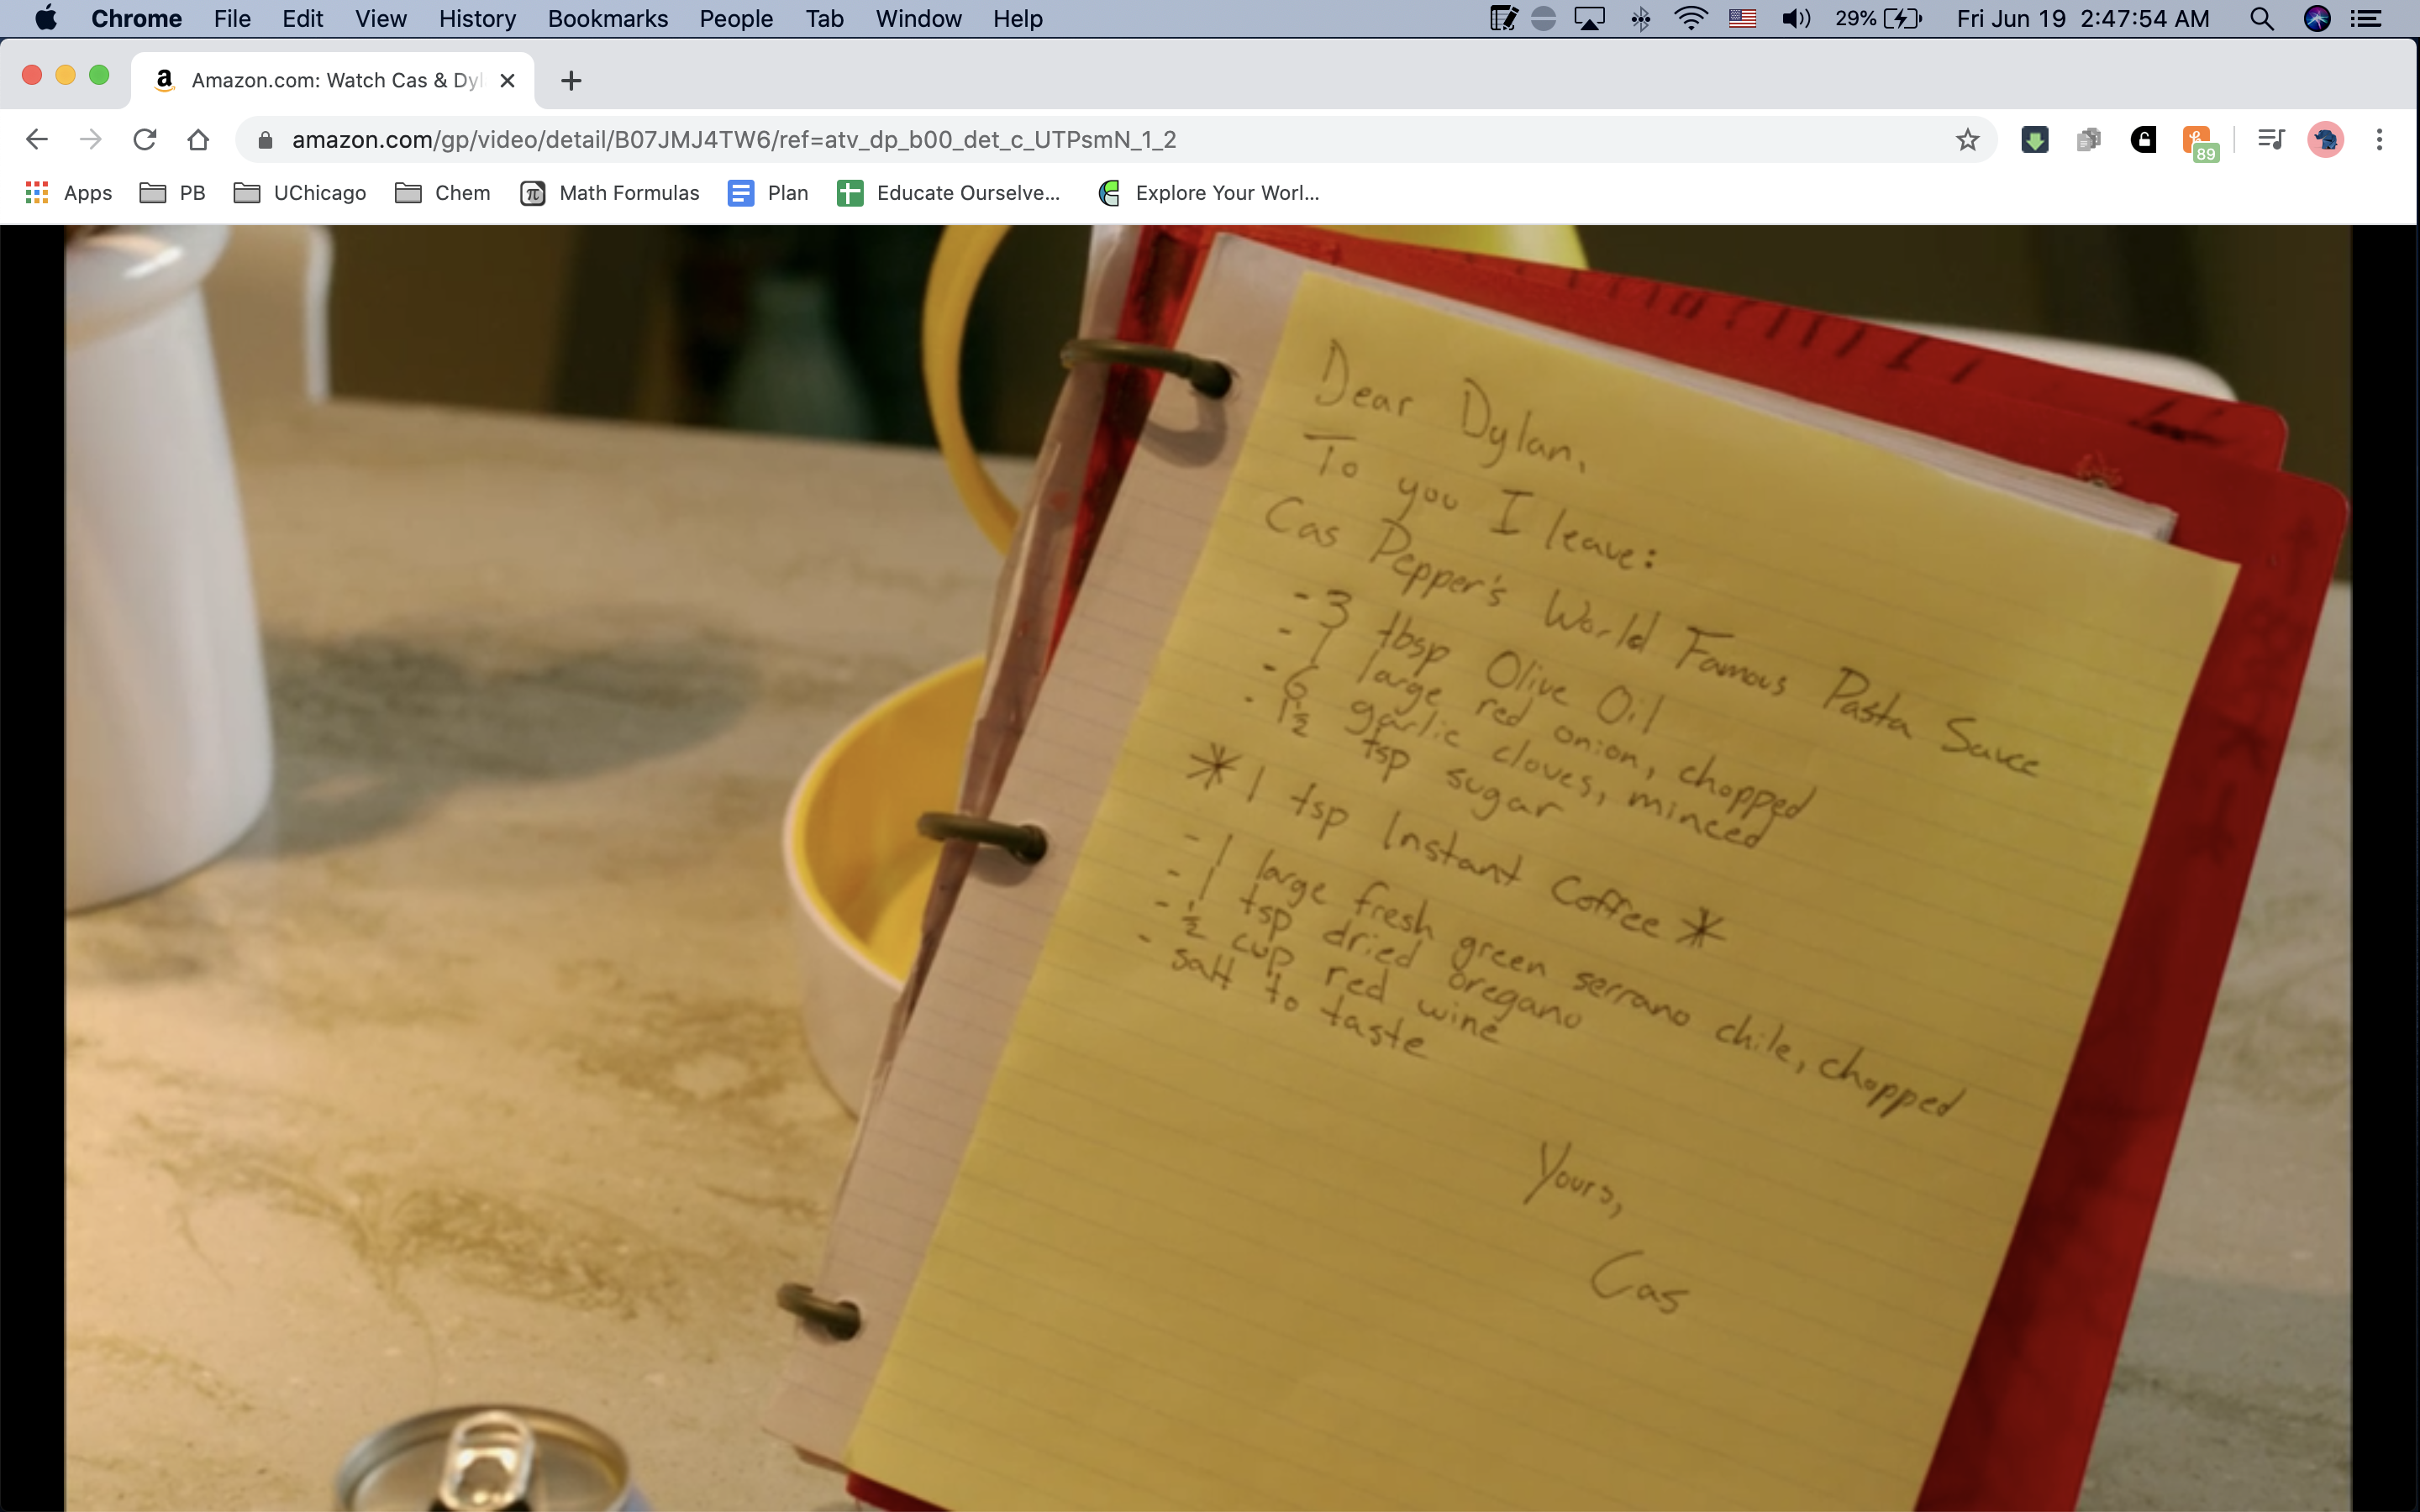 Chrome File Edit View History Bookmarks People Tab Window Help 29% Fri Jun 19 2:47:54 AM
Amazon.com: Watch Cas & Dyl
amazon.com/gp/video/detail/B07JMJ4TW6/ref=atv_dp_b00_det_c_UTPsmN_1_2
89
Apps PB UChicago Chem Math Formulas Plan Educate Ourselve... Explore Your Worl...
Dear Dylan,
To you I leave:
Cas Pepper's World Famous Pasta Sauce
- 3 tbsp Olive Oil
- 1 large red onion, chopped
- 6 garlic cloves, minced
- 1½ tsp sugar
* 1 tsp Instant Coffee *
- 1 large fresh green serrano chile, chopped
- 1 tsp dried oregano
- ½ cup red wine
- salt to taste
Yours,
Cas